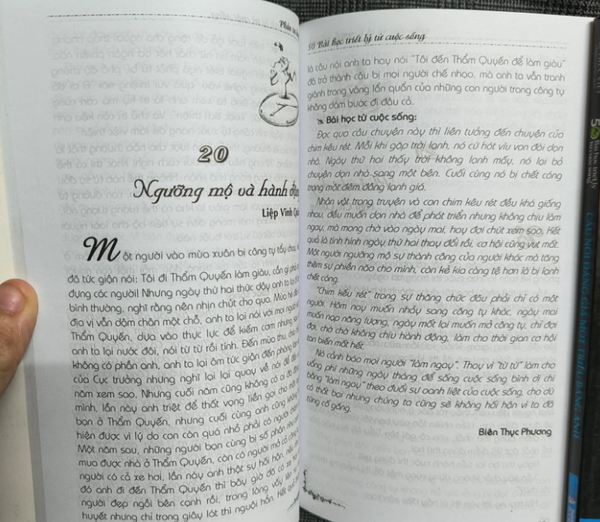 20
Ngưỡng mộ và hành
Liệp Vinh
Một người vào mùa xuân bị công ty tẩy chay,
đã tức giận nói: Tôi đi Thẩm Quyến làm giàu, cần gì
dụng các người! Nhưng ngày thứ hai thức dậy anh ta
bình thường, nghĩ rằng nên nhịn chút cho qua. Mùa hè
địa vị vẫn dậm chân một chỗ, anh ta lại nói với mọi người
Thẩm Quyến, dựa vào thực lực để kiếm cơm nhưng
anh ta lại nước đôi, nói từ từ rồi tính. Đến mùa thu,
không có phần anh, anh ta lại ôm tức giận đến phòng
của Cục trưởng nhưng nghĩ lại lại quay về nói để
năm xem sao. Nhưng cuối năm cũng không có ai
mình, lần này anh triệt để thất vọng liền gọi cho
bạn ở Thẩm Quyến, nhưng cuối cùng anh cũng không
hiện được vì lý do con còn quá nhỏ phải có người
Một năm sau, những người bạn cùng bị số phận như
mua được nhà ở Thẩm Quyến, còn có người mở cả công
người có cả xe hơi, lần này anh thật sự hối hận, nếu
đó anh đi đến Thẩm Quyến thì bây giờ đã có xe
người đẹp ngồi bên cạnh rồi, trong lòng vậy
huyết nhưng chỉ trong giây lát thì nguội hẳn. Hết
Bài học triết lý từ cuộc sống
là câu nói anh ta hay nói "Tôi đến Thẩm Quyến để làm giàu"
đã trở thành câu bị mọi người chế nhạo, mà anh ta vẫn tranh
giành trong vòng lẩn quẩn của những con người trong công ty
không dám bước đi đâu cả.
Bài học từ cuộc sống:
Đọc qua câu chuyện này thì liên tưởng đến chuyện của
chim kêu rét. Mỗi khi gặp trời lạnh, nó cứ hót víu von đòi dọn
nhà. Ngày thứ hai thấy trời không lạnh mấy, nó lại bỏ
chuyện dọn nhà sang một bên. Cuối cùng nó bị chết cóng
trong một đêm đông lạnh giá.
Nhân vật trong truyện và con chim kêu rét đều khá giống
nhau, đều muốn dọn nhà để phát triển nhưng không chịu làm
ngay, mà mong chờ vào ngày mai, hay đợi chút xem sao. Kết
quả là tình hình ngày thứ hai thay đổi rồi, cơ hội cũng vụt mất.
Một người ngưỡng mộ sự thành công của người khác mà tăng
thêm sự phiền não cho mình, còn kẻ kia càng tệ hơn là bị lạnh
chết cóng.
"Chim kêu rét" trong sự thăng chức đâu phải chỉ có một
người. Hôm nay muốn nhảy sang công ty khác, ngày mai
muốn nạp năng lượng, ngày mốt lại muốn mở công ty, chỉ đợi
đợi, chờ chờ không chịu hành động, làm cho thời gian cơ hội
tan biến mất hết.
Nó cảnh báo mọi người "làm ngay". Thay vì "từ từ" làm cho
uổng phí những ngày tháng để sống cuộc sống bình dị chi
bằng "làm ngay" theo đuổi sự oanh liệt của cuộc sống, cho dù
có thất bại nhưng chúng ta cũng sẽ không hối hận vì ta đã
từng cố gắng.
Biên Thục Phương